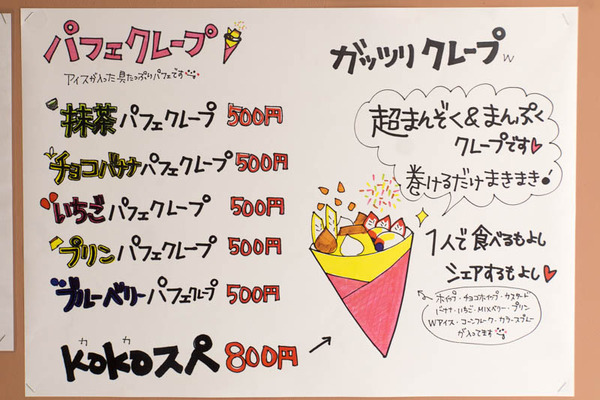 パフェクレープ
アイスが入った具たっぷりパフェです
抹茶パフェクレープ 500円
チョコバナナパフェクレープ 500円
いちごパフェクレープ 500円
プリンパフェクレープ 500円
ブルーベリーパフェクレープ 500円
カ カ
KoKoスペ 800円
ガッツリクレープw
超まんぞく&まんぷく
クレープです
巻けるだけまきまき!
1人で食べるもよし
シェアするもよし
ホイップ・チョコホイップ・カスタード
バナナ・いちご・MIXベリー・プリン
Wアイス・コーンフレーク・カラースプレー
が入ってます